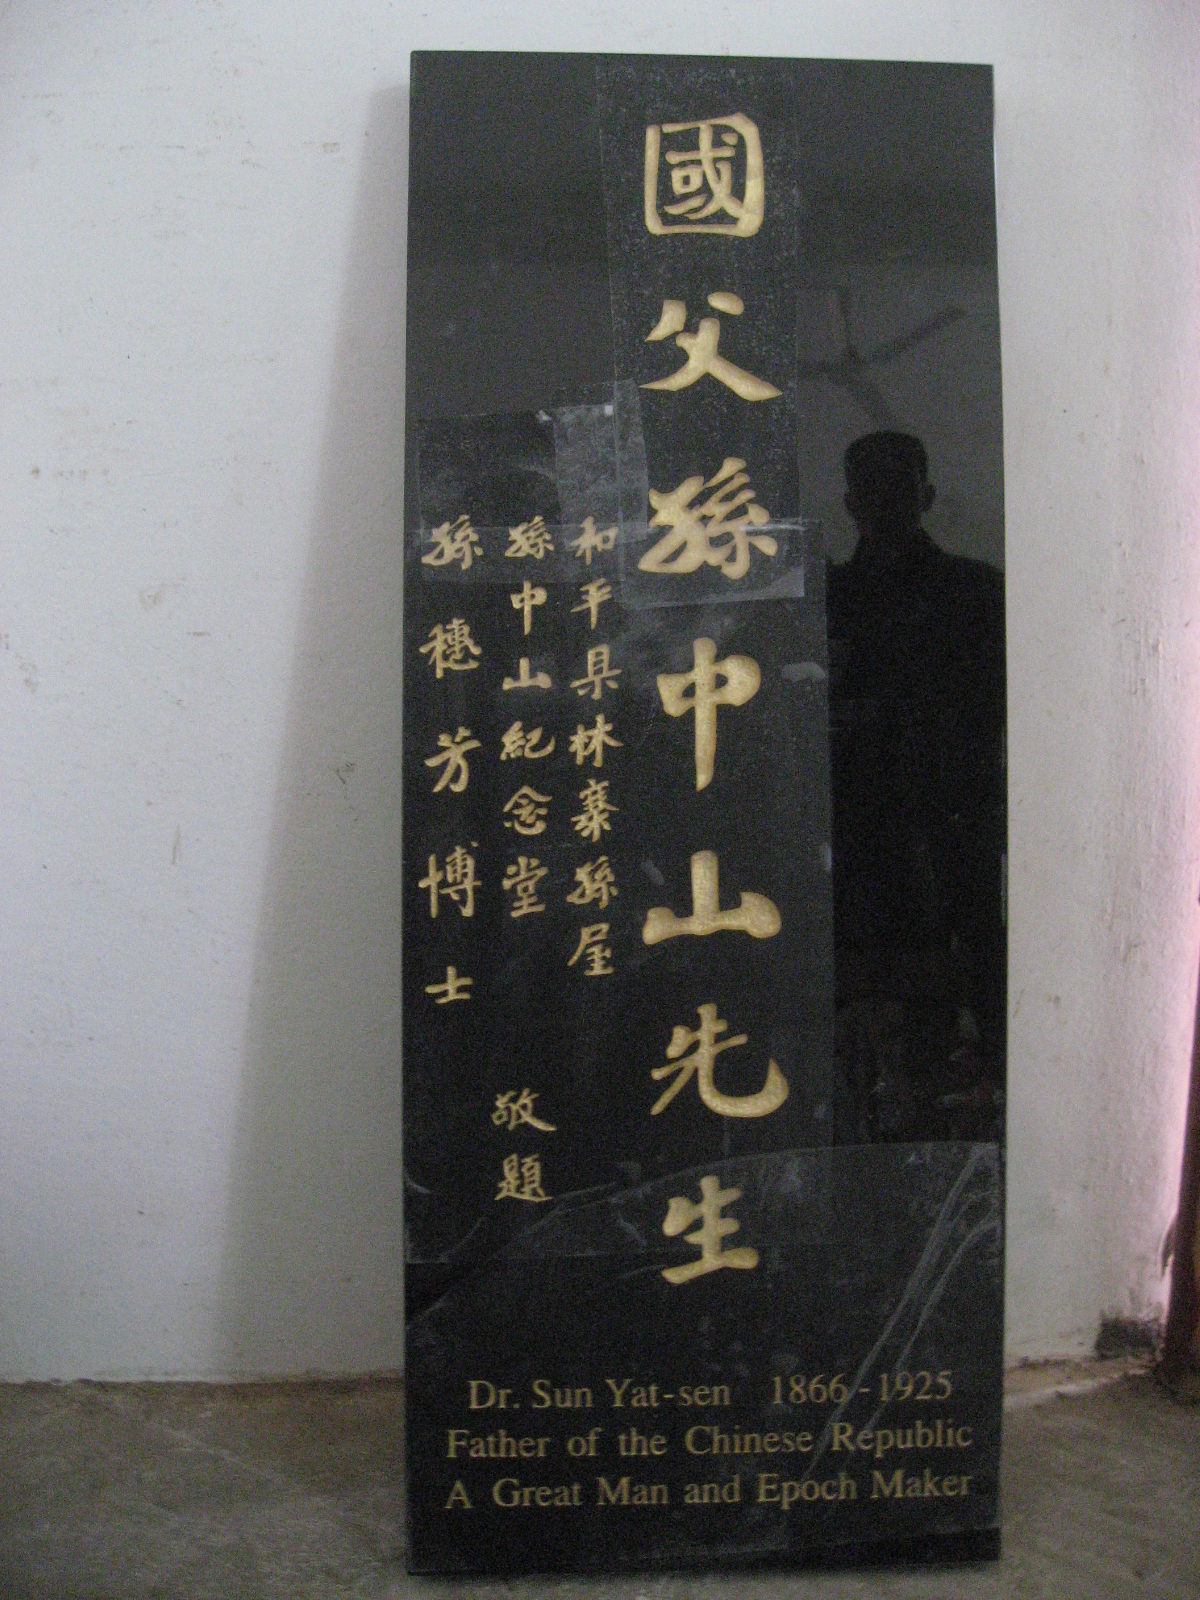 國父孫中山先生
和平具林寨孫屋
孫中山紀念堂 敬題
孫穗芳博士
Dr. Sun Yat-sen 1866-1925
Father of the Chinese Republic
A Great Man and Epoch Maker